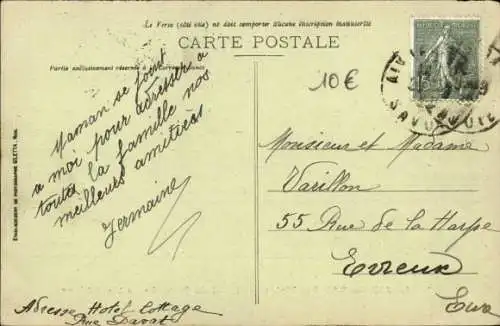 Le Verso (côté vue) ne doit comporter aucune inscription manuscrite
CARTE POSTALE
Partie exclusivement réservée à la Correspondance
10€
Maman se joint
a moi pour adresser a
toute la famille nos
meilleures amitiés
Germaine
Adresse Hotel Cottage
Rue Davat
Monsieur et Madame
Varillon
55 Rue de la Harpe
Evreux
Eure
ETABLISSEMENT DE PHOTOGRAPHIE GILETTA - Nice
AIX
SAVOIE